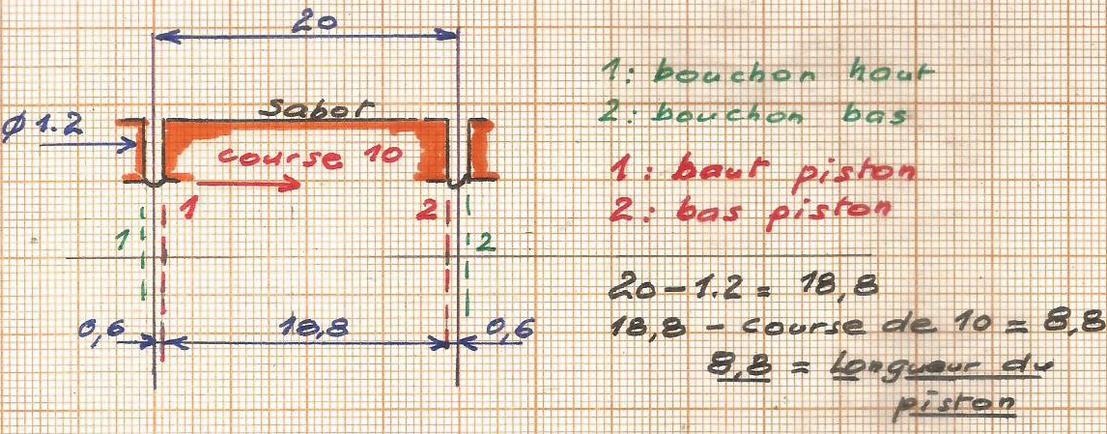 20
Sabot
Ø 1.2
course 10
1 2
1 2
0,6 18,8 0,6
1: bouchon haut
2: bouchon bas
1: haut piston
2: bas piston
20-1.2 = 18,8
18,8 - course de 10 = 8,8
8,8 = Longueur du
piston